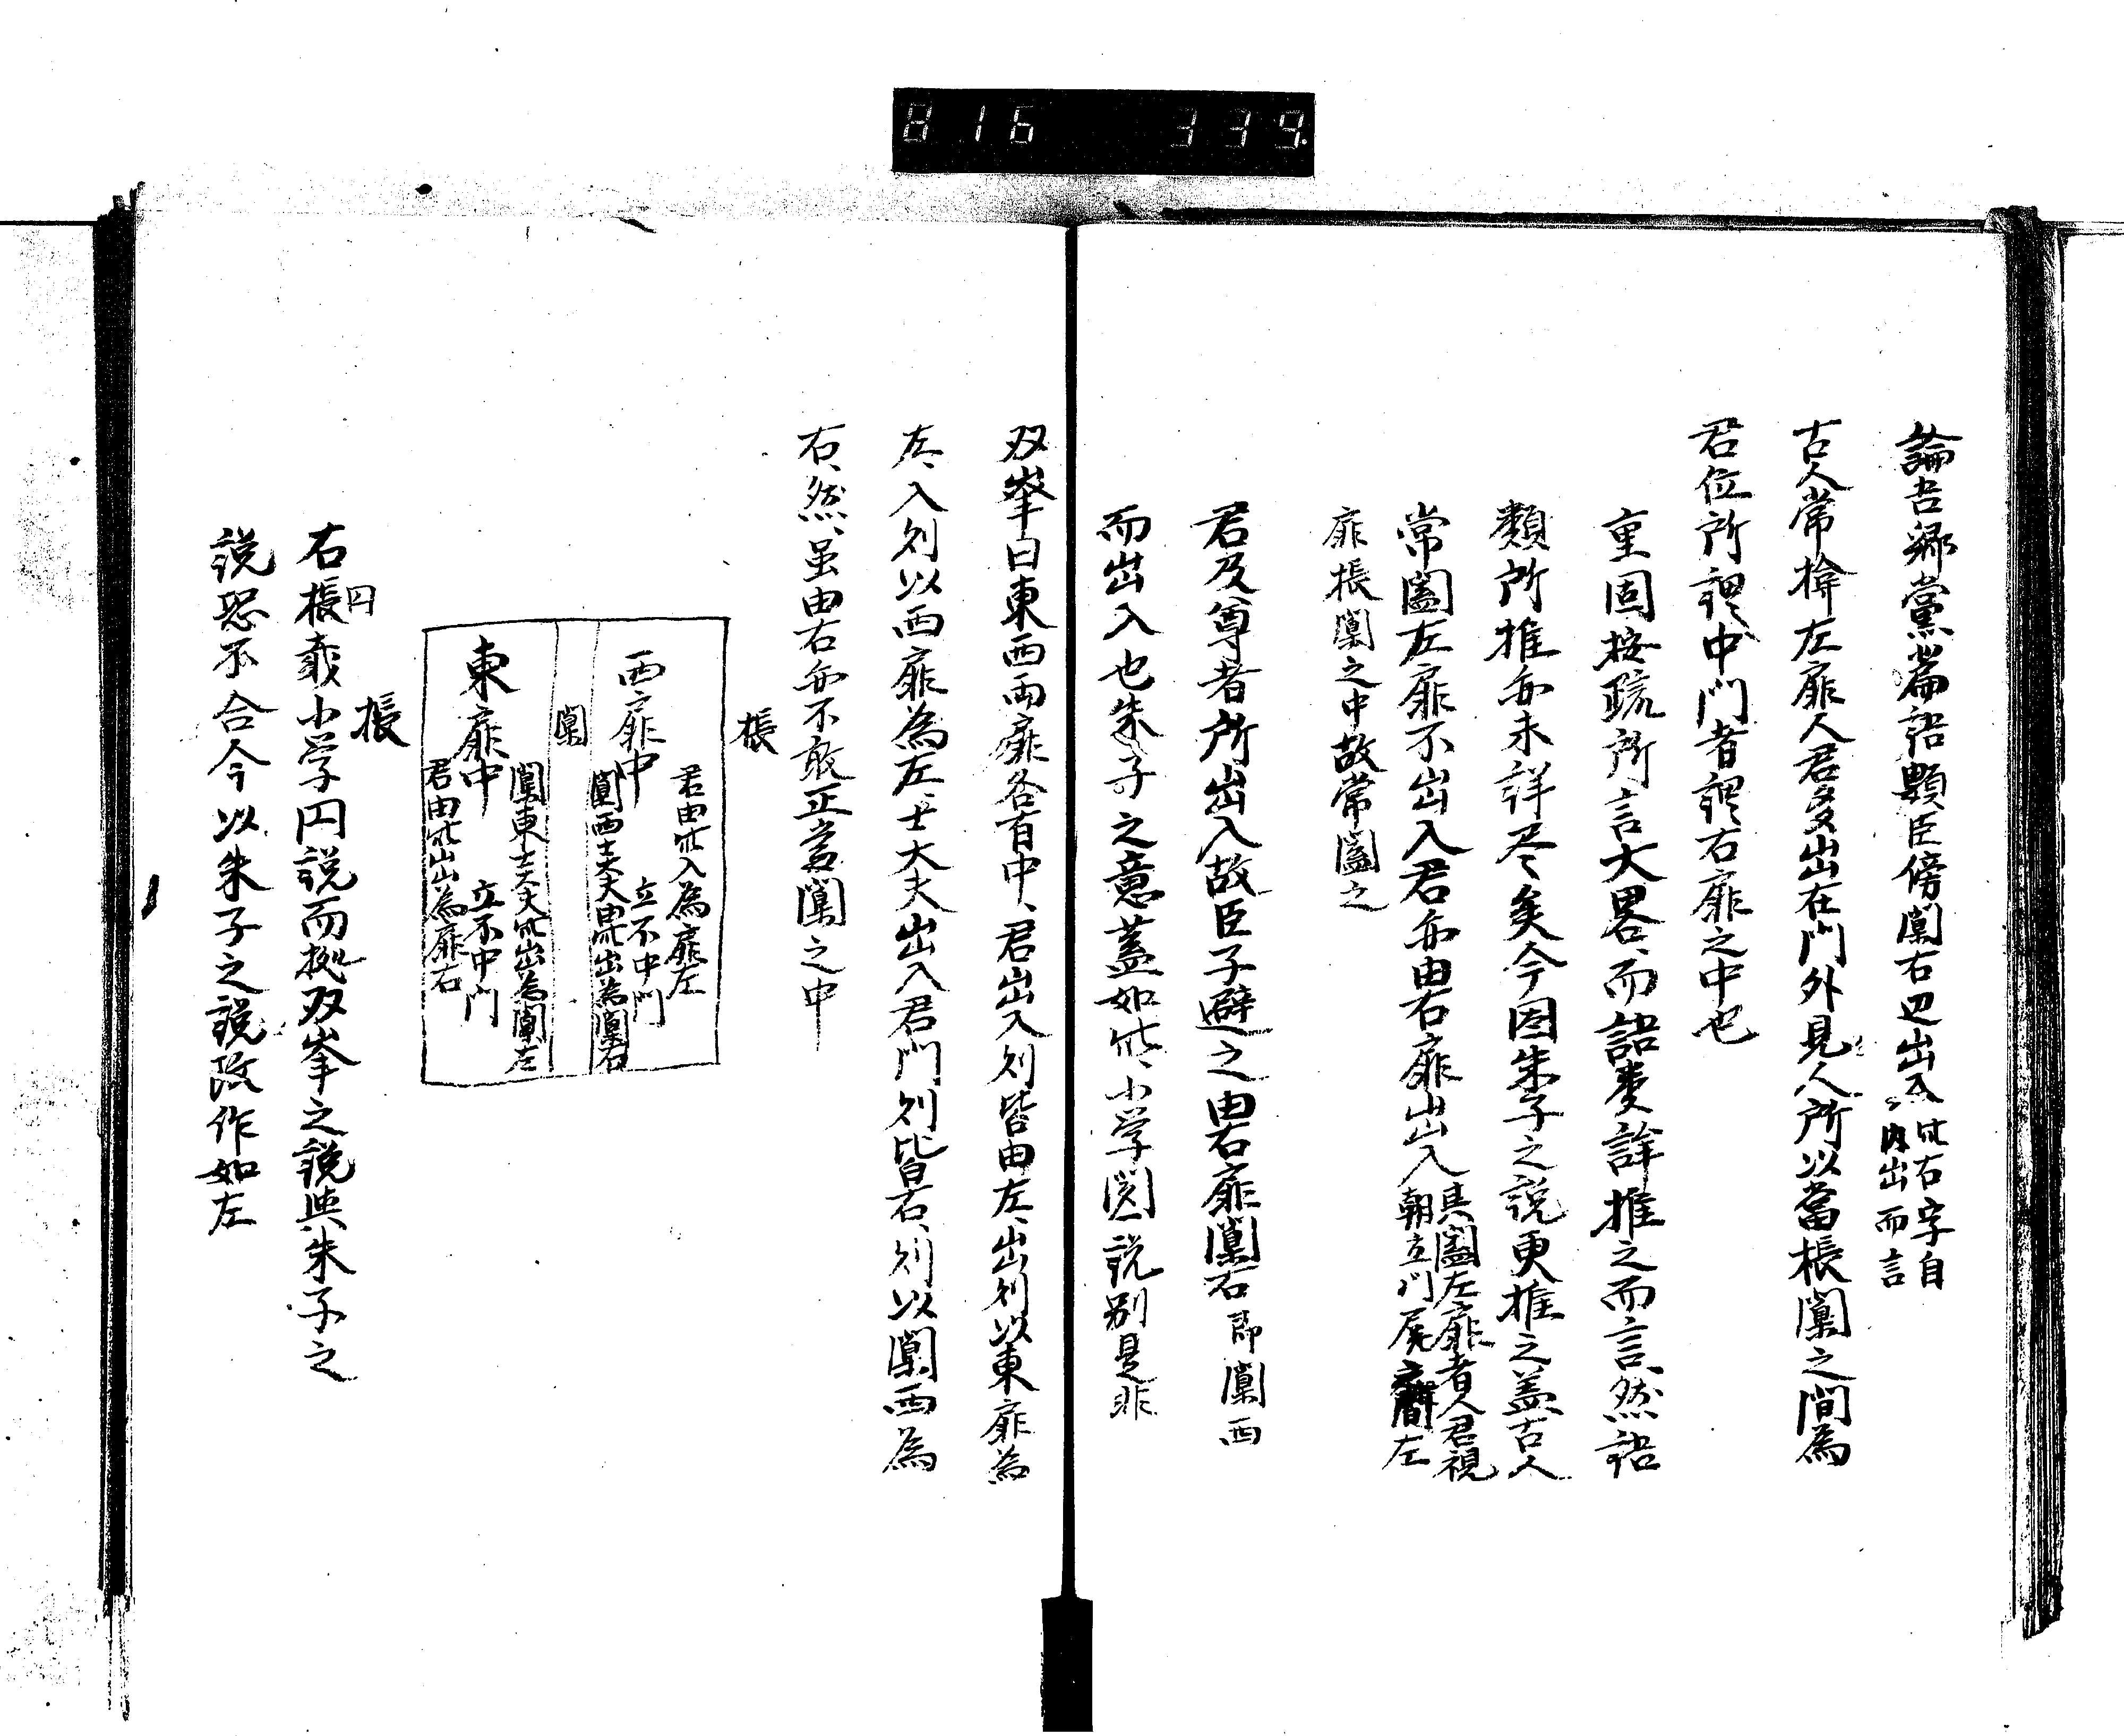 816 339
論吾鄉黨篇語類臣傍闑右辺出入此右字自
內出而言
古人常揜左扉人君多出在門外見人所以當棖闑之間為
君位所謂中門者謂右扉之中也
重固按疏所言大畧而語类詳推之而言然語
類所推亦未詳尽矣今因朱子之說更推之盖古人
常闔左扉不出入君亦由右扉出入其闔左扉者人君視
朝立門左
扉棖闑之中故常闔之
君及尊者所出入故臣子避之由右扉闑右即闑西
而出入也朱子之意蓋如此小学図說別是非
双峯曰東西両扉各有中君出入則皆由左出則以東扉為
左入則以西扉為左士大夫出入君門則皆右則以闑西為
右然虽由右亦不敢正當闑之中
棖
君由此入為扉左
西扉中
立不中門
闑西士大夫由此出為闑右
闑
闑東士大夫此出為闑左
東扉中
立不中門
君由此出為扉右
棖
円
右棖闑小学円說而拠双峯之說與朱子之
說恐不合今以朱子之說改作如左